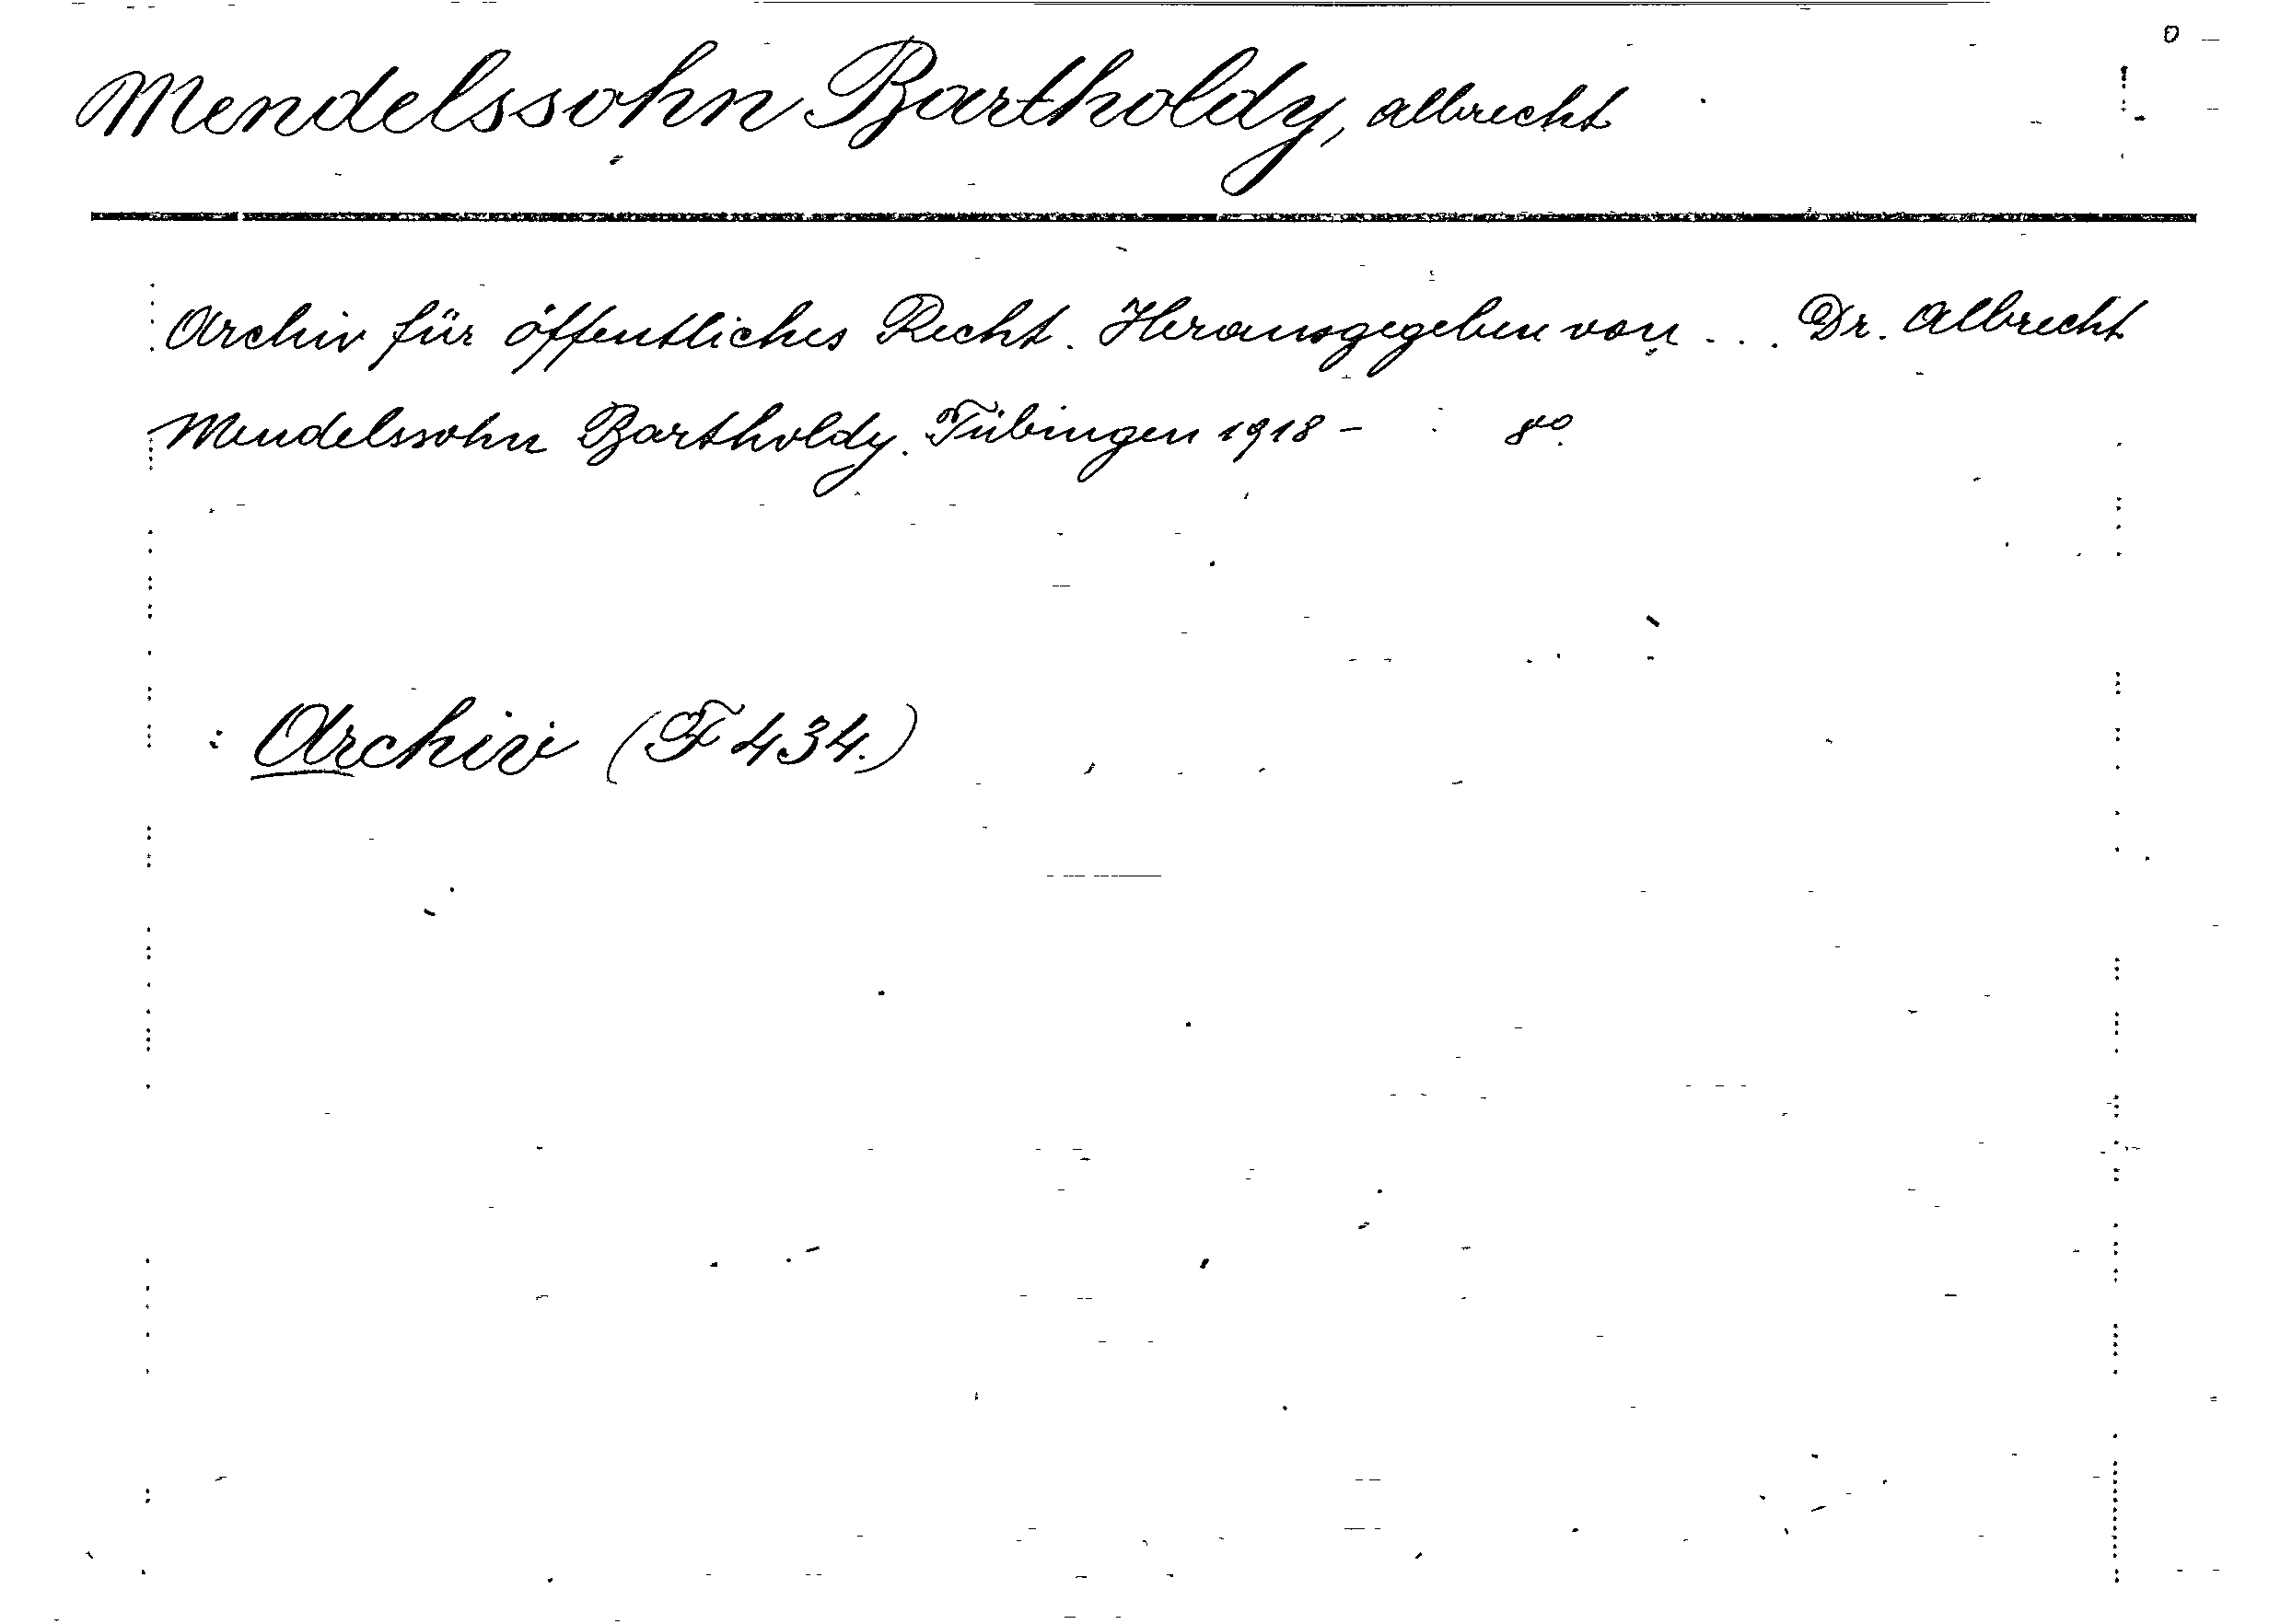 Mendelssohn Bartholdy, Albrecht
Archiv für öffentliches Recht. Herausgegeben von ... Dr. Albrecht
Mendelssohn Bartholdy. Tübingen 1918 -     8°.
Archiv (F 434.)